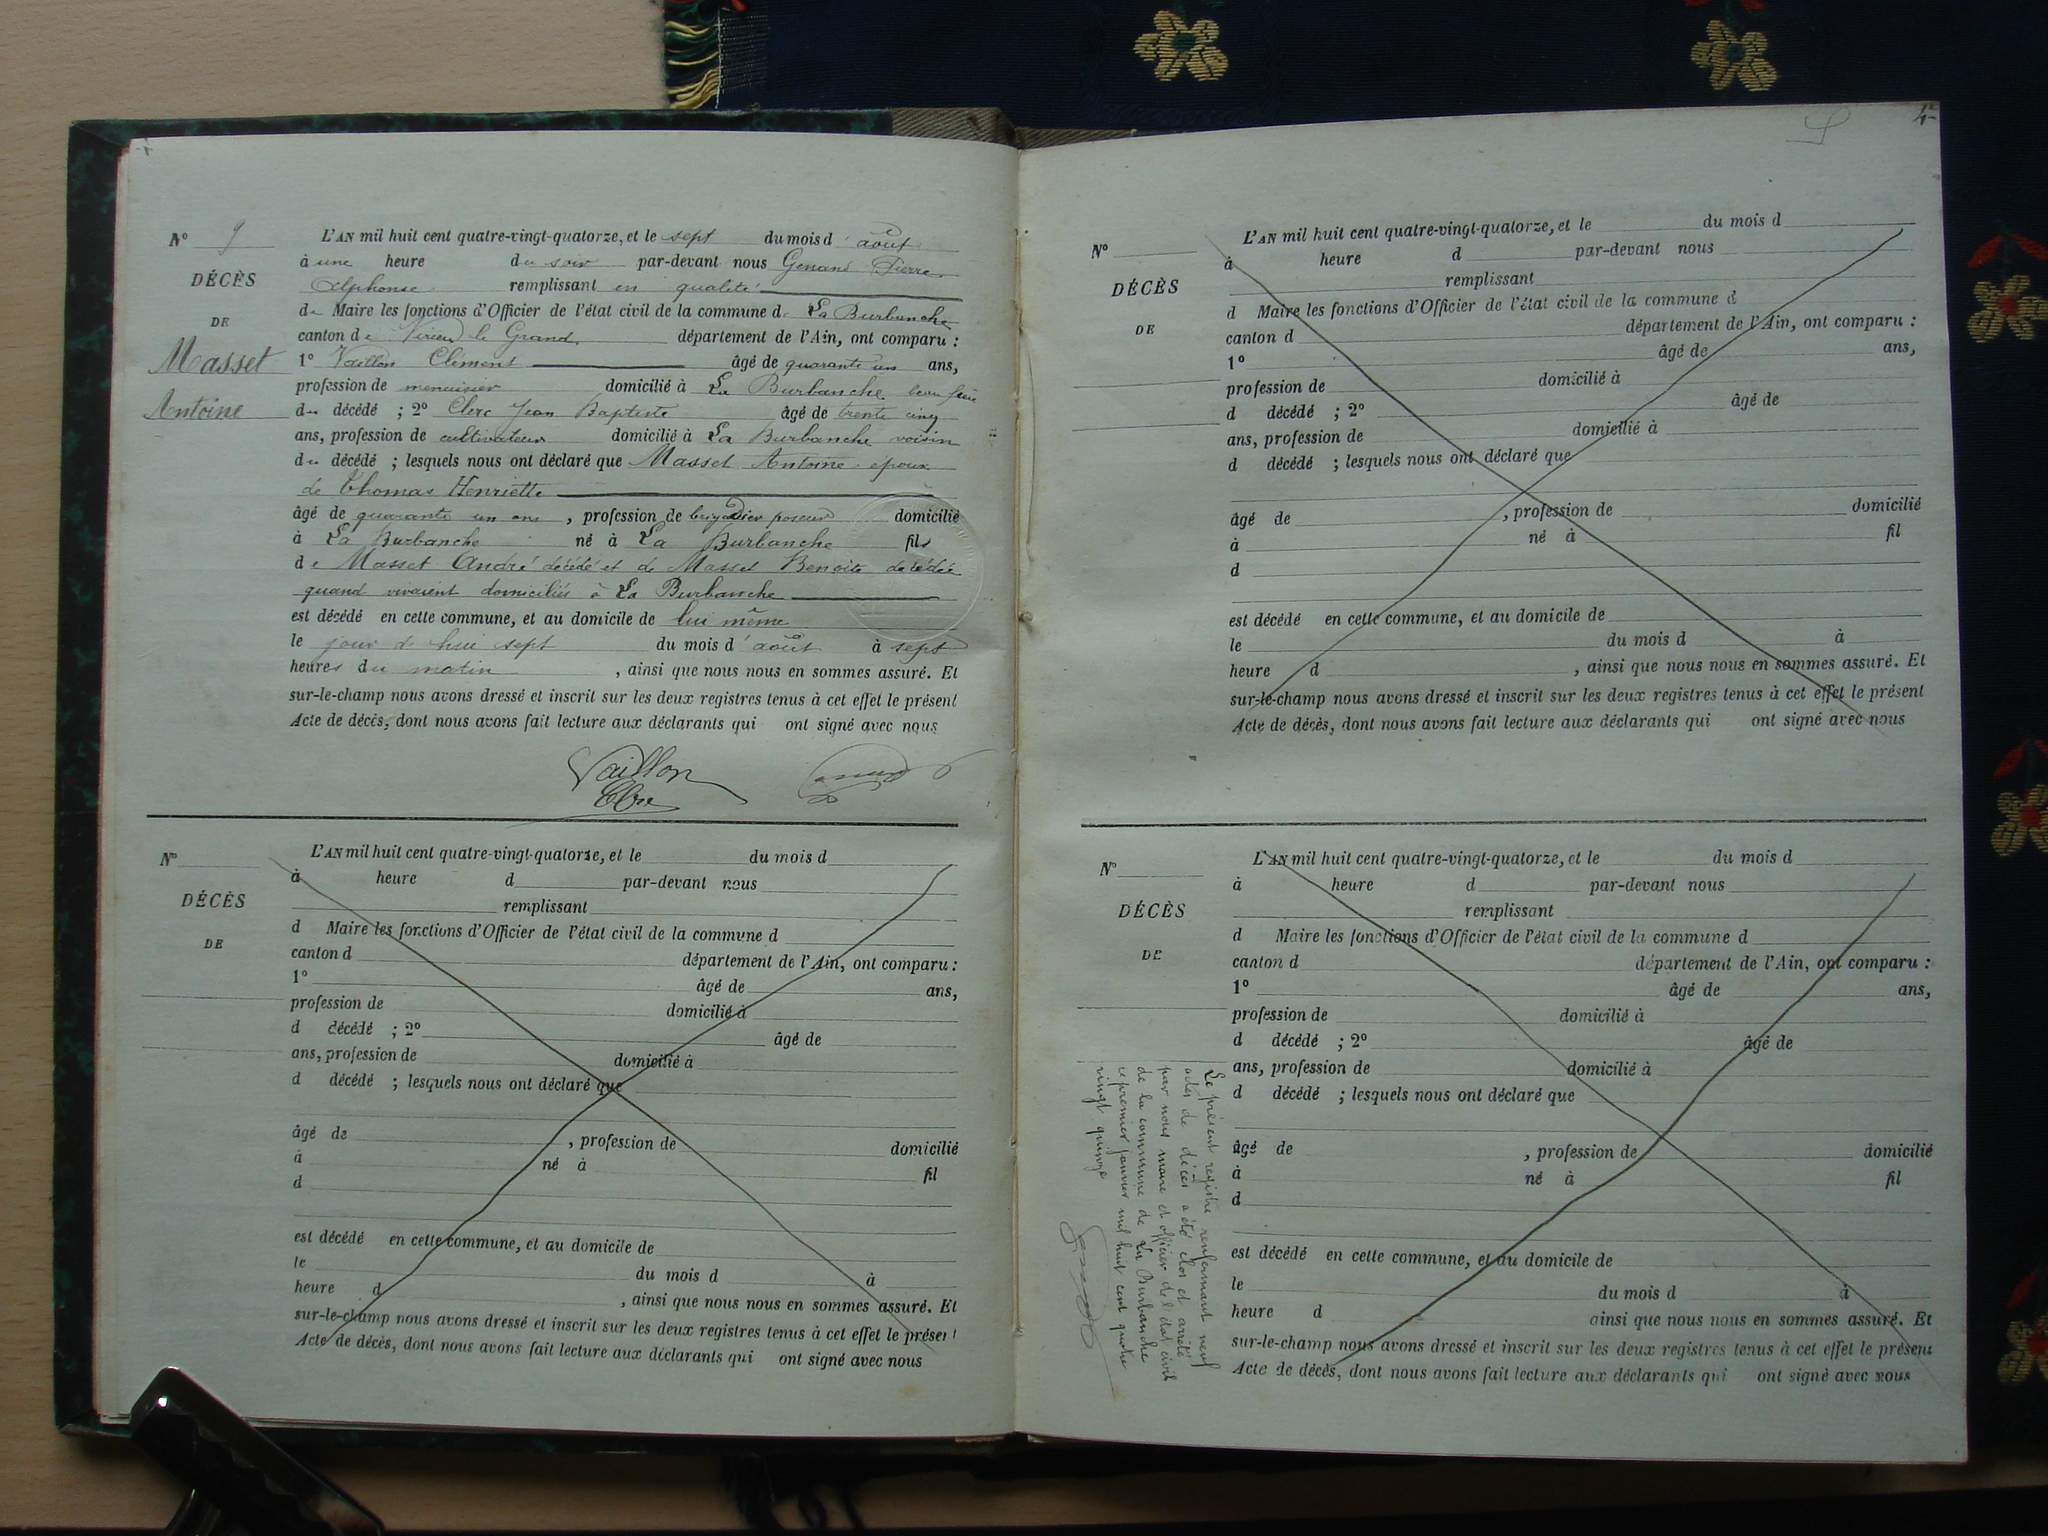 N° 9
DÉCÈS
DE
Masset
Antoine
L'AN mil huit cent quatre-vingt-quatorze, et le sept du mois d'août
à une heure du soir par-devant nous Genand Pierre
Alphonse remplissant en qualité
de Maire les fonctions d'Officier de l'état civil de la commune de La Burbanche
canton de Virieu le Grand département de l'Ain, ont comparu :
1° Vaillon Clément âgé de quarante un ans,
profession de menuisier domicilié à La Burbanche beau frère
du décédé ; 2° Clerc Jean Baptiste âgé de trente cinq
ans, profession de cultivateur domicilié à La Burbanche voisin
du décédé ; lesquels nous ont déclaré que Masset Antoine époux
de Thomas Henriette
âgé de quarante un ans , profession de brigadier poseur domicilié
à La Burbanche né à La Burbanche fils
de Masset André décédé et de Masset Benoite décédée
quand vivaient domiciliés à La Burbanche
est décédé en cette commune, et au domicile de lui même
le jour d'hui sept du mois d'août à sept
heures du matin , ainsi que nous nous en sommes assuré. Et
sur-le-champ nous avons dressé et inscrit sur les deux registres tenus à cet effet le présent
Acte de décès, dont nous avons fait lecture aux déclarants qui ont signé avec nous
Vaillon
N°
DÉCÈS
DE
L'AN mil huit cent quatre-vingt-quatorze, et le du mois d
à heure d par-devant nous
remplissant
d Maire les fonctions d'Officier de l'état civil de la commune d
canton d département de l'Ain, ont comparu :
1° âgé de ans,
profession de domicilié à
d décédé ; 2° âgé de
ans, profession de domicilié à
d décédé ; lesquels nous ont déclaré que
âgé de , profession de domicilié
à né à fil
d
est décédé en cette commune, et au domicile de
le du mois d à
heure d , ainsi que nous nous en sommes assuré. Et
sur-le-champ nous avons dressé et inscrit sur les deux registres tenus à cet effet le présent
Acte de décès, dont nous avons fait lecture aux déclarants qui ont signé avec nous
4
N°
DÉCÈS
DE
L'AN mil huit cent quatre-vingt-quatorze, et le du mois d
à heure d par-devant nous
remplissant
d Maire les fonctions d'Officier de l'état civil de la commune d
canton d département de l'Ain, ont comparu :
1° âgé de ans,
profession de domicilié à
d décédé ; 2° âgé de
ans, profession de domicilié à
d décédé ; lesquels nous ont déclaré que
âgé de , profession de domicilié
à né à fil
d
est décédé en cette commune, et au domicile de
le du mois d à
heure d , ainsi que nous nous en sommes assuré. Et
sur-le-champ nous avons dressé et inscrit sur les deux registres tenus à cet effet le présent
Acte de décès, dont nous avons fait lecture aux déclarants qui ont signé avec nous
N°
DÉCÈS
DE
L'AN mil huit cent quatre-vingt-quatorze, et le du mois d
à heure d par-devant nous
remplissant
d Maire les fonctions d'Officier de l'état civil de la commune d
canton d département de l'Ain, ont comparu :
1° âgé de ans,
profession de domicilié à
d décédé ; 2° âgé de
ans, profession de domicilié à
d décédé ; lesquels nous ont déclaré que
âgé de , profession de domicilié
à né à fil
d
est décédé en cette commune, et au domicile de
le du mois d à
heure d ainsi que nous nous en sommes assuré. Et
sur-le-champ nous avons dressé et inscrit sur les deux registres tenus à cet effet le présent
Acte de décès, dont nous avons fait lecture aux déclarants qui ont signé avec nous
Le présent registre renfermant neuf
actes de décès a été clos et arrêté
par nous maire et officier de l'état civil
de la commune de La Burbanche
ce premier janvier mil huit cent quatre
vingt quinze